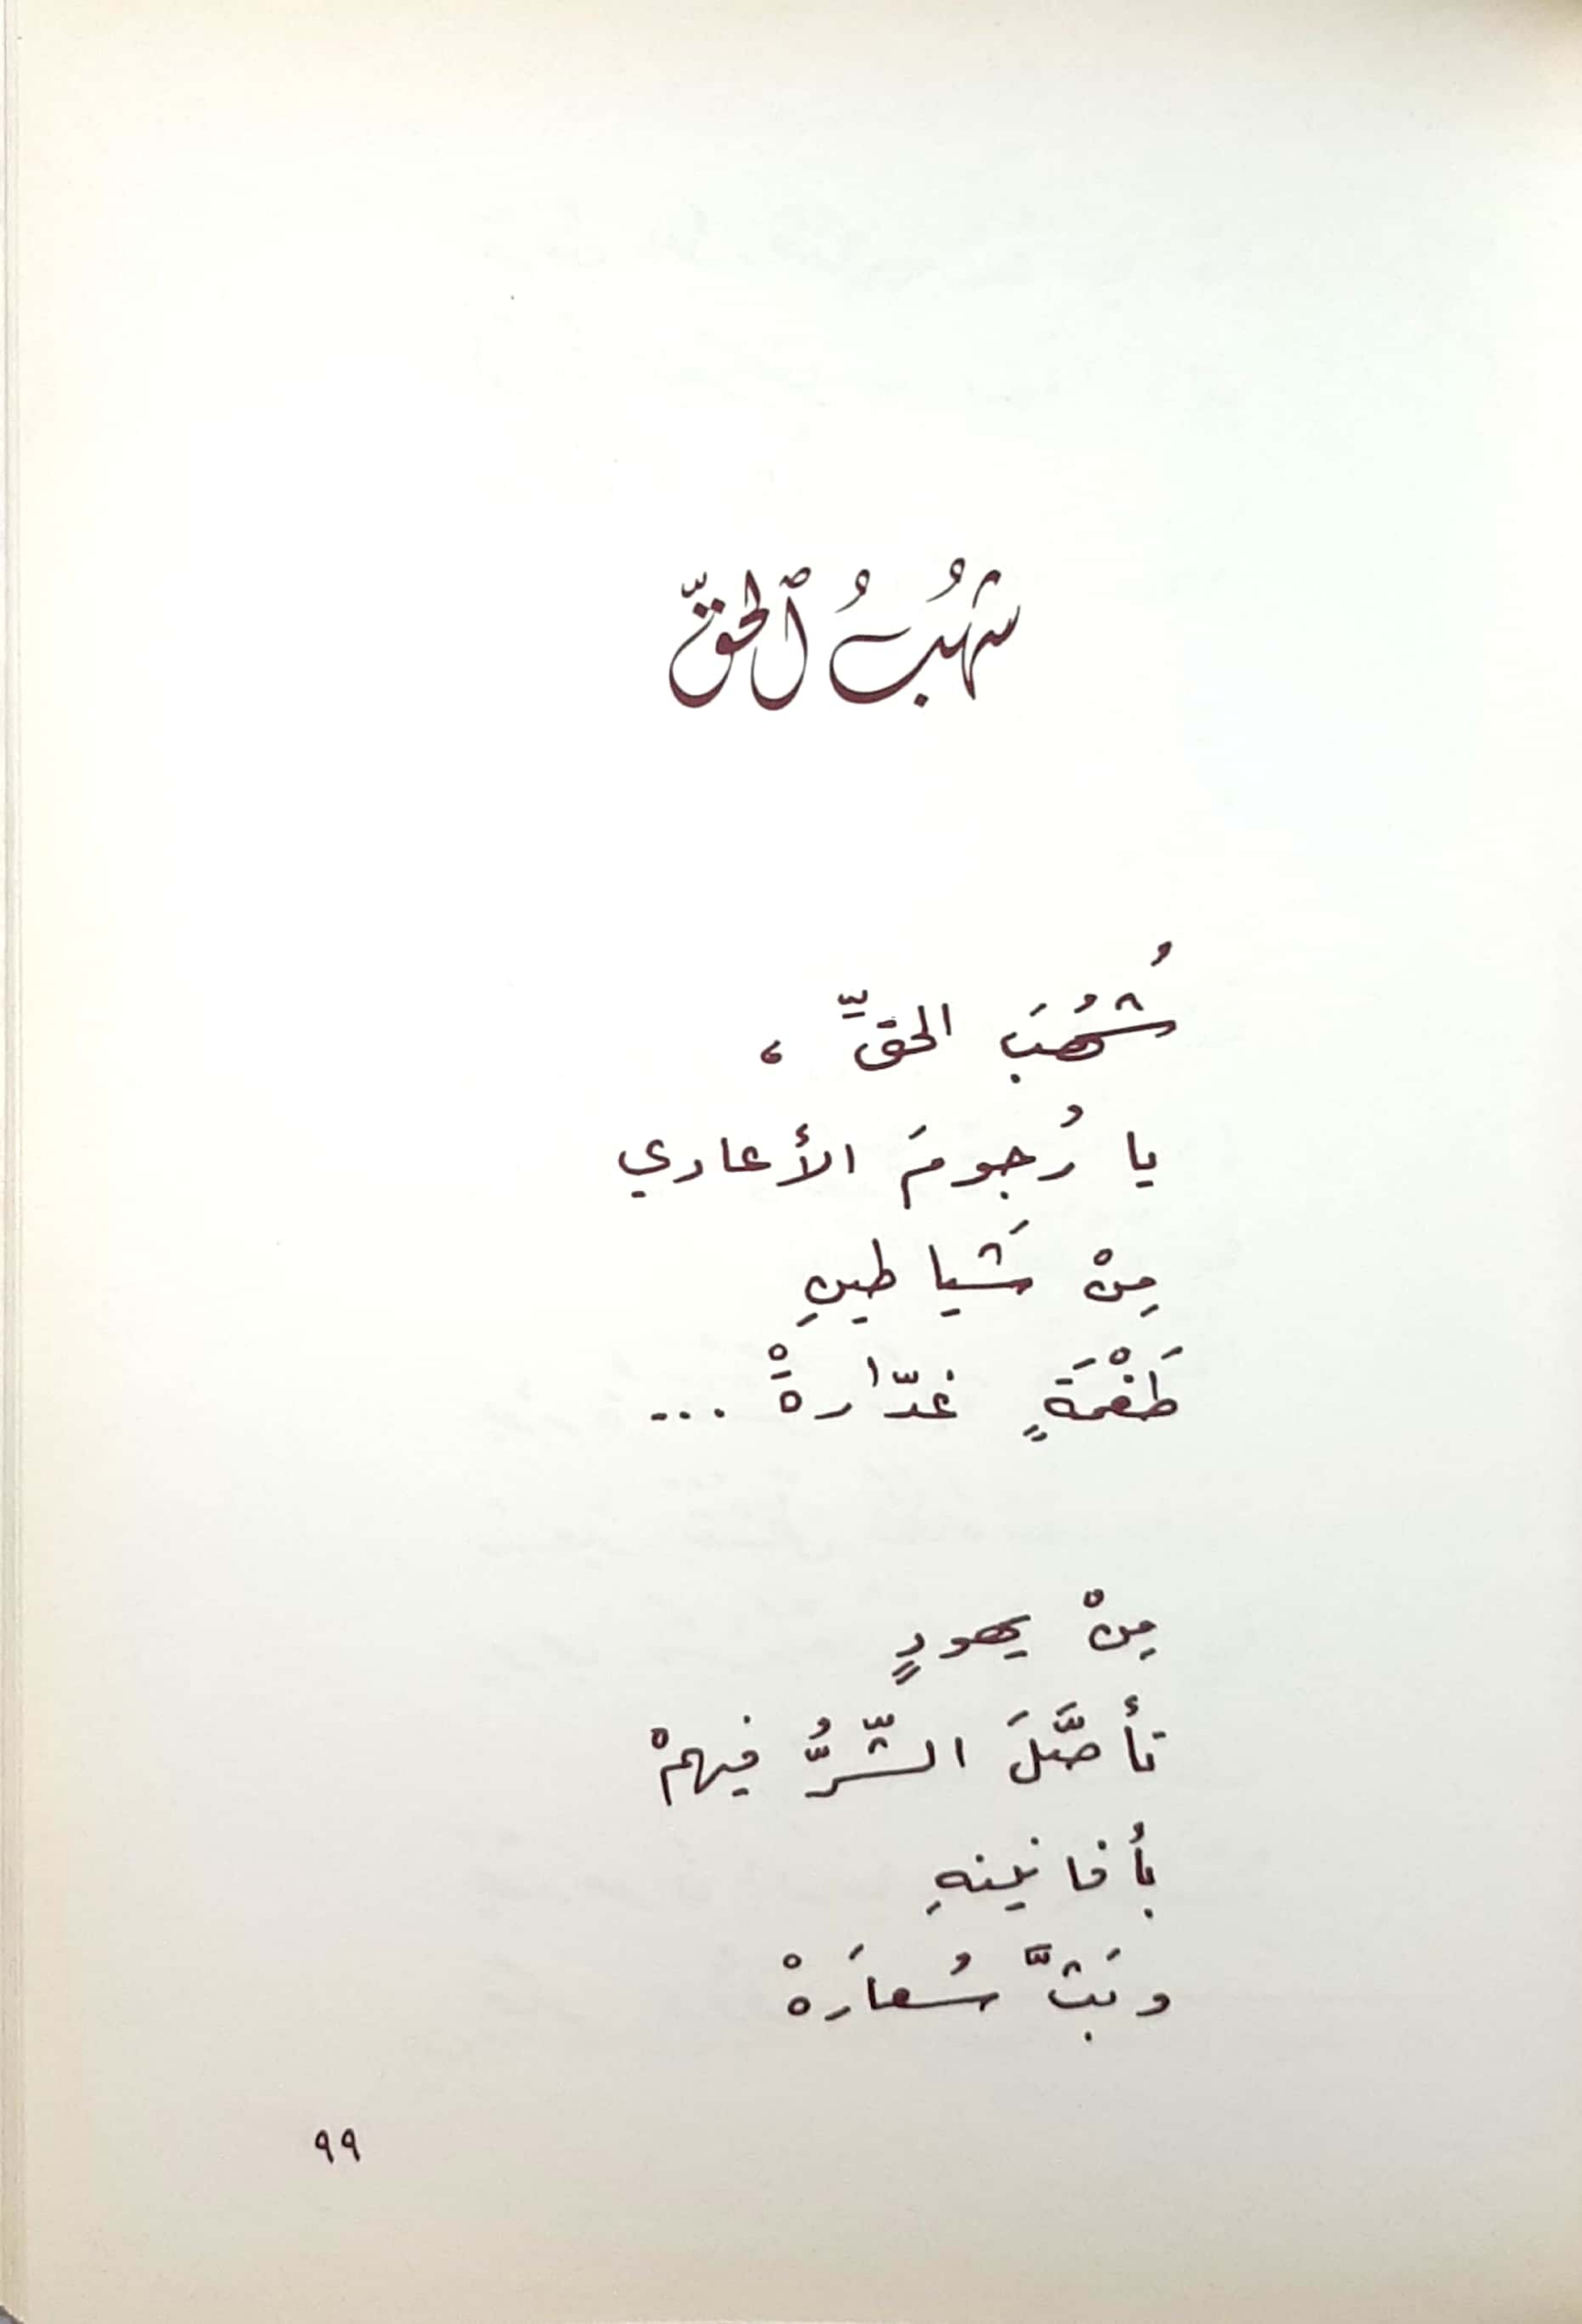 شُهُبُ ٱلحقّ
شُهُبَ الحقِّ ،
يا رُجومَ الأعادي
مِنْ شَياطينِ
طَغْمَةٍ غدّارةْ ...
مِنْ يهودٍ
تأصَّلَ الشّرُّ فيهمْ
بأفانينهِ
وبَثَّ سُعارَهْ
٩٩